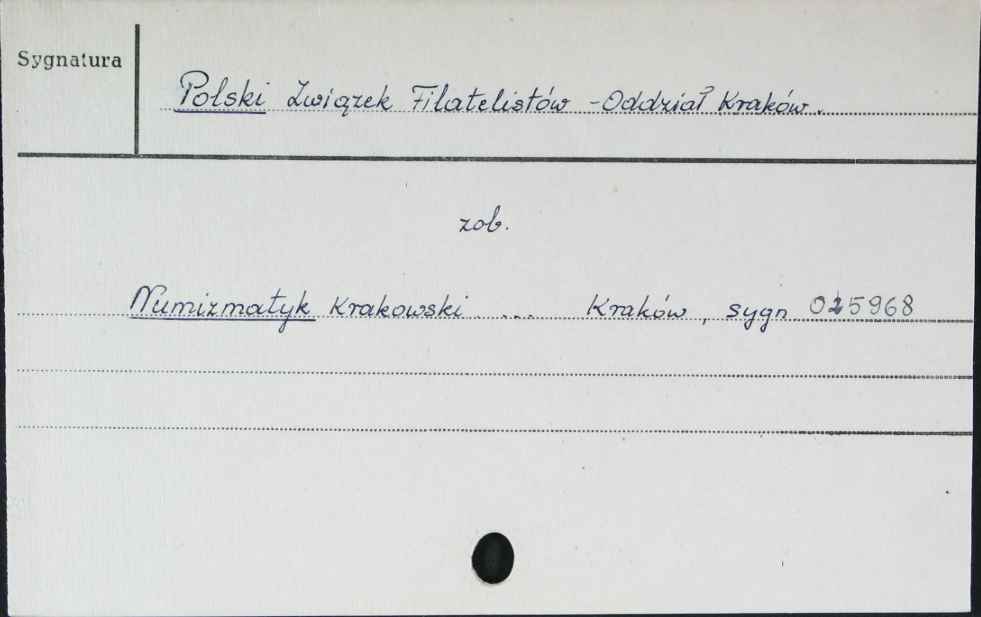 Sygnatura
Polski Związek Filatelistów - Oddział Kraków.
zob.
Numizmatyk Krakowski ... Kraków, sygn 025968